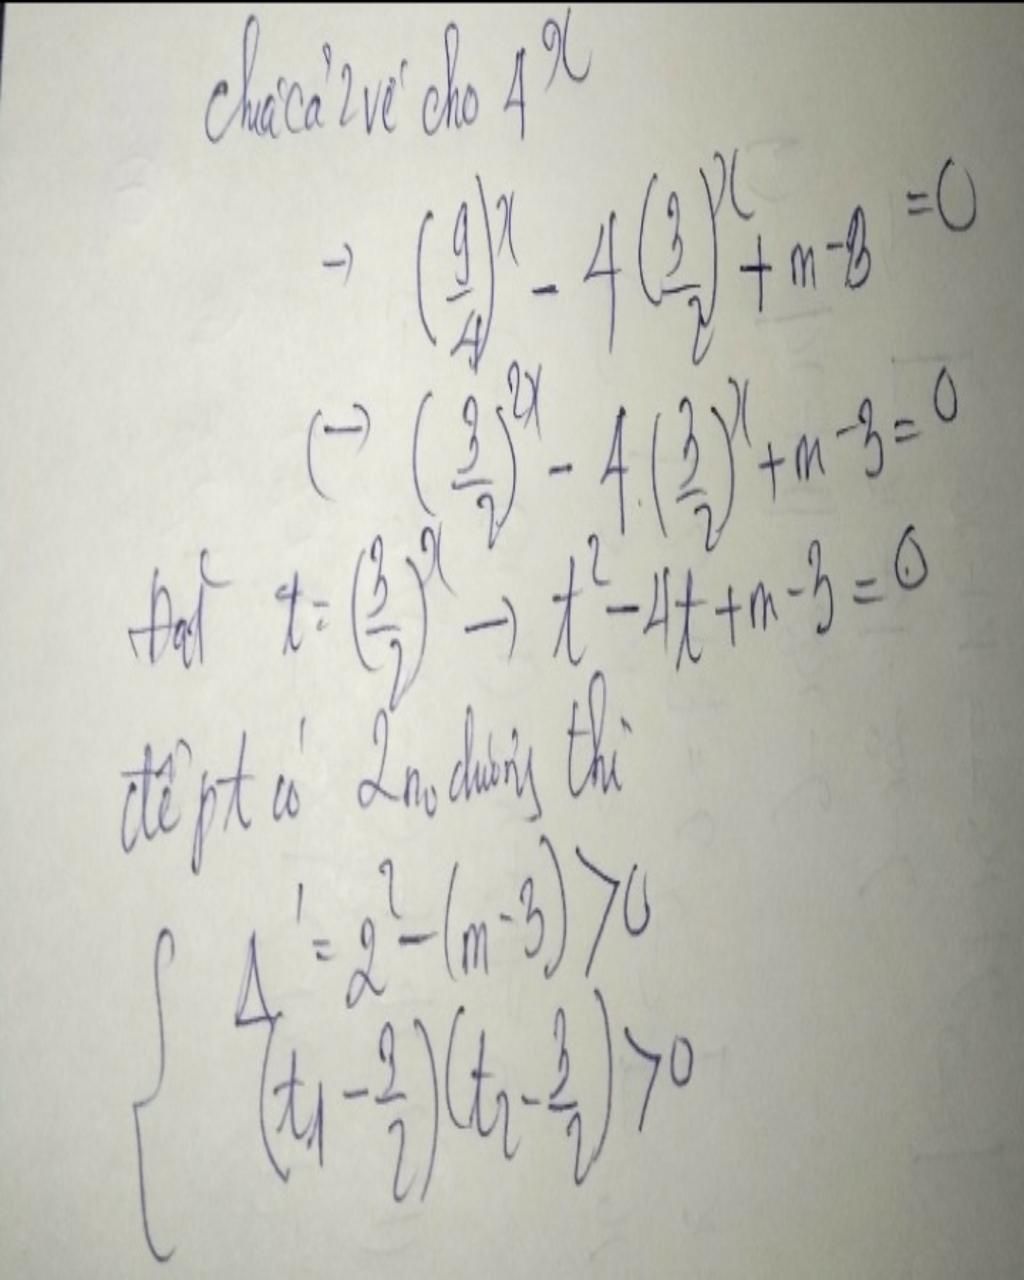 chia cả 2 vế cho 4^x
→ (9/4)^x - 4(3/2)^x + m - 3 = 0
(→) (3/2)^2x - 4.(3/2)^x + m - 3 = 0
Đặt t = (3/2)^x → t^2 - 4t + m - 3 = 0
để pt có 2 no dương thì
{ Δ' = 2^2 - (m - 3) > 0
(t1 - 3/2)(t2 - 3/2) > 0